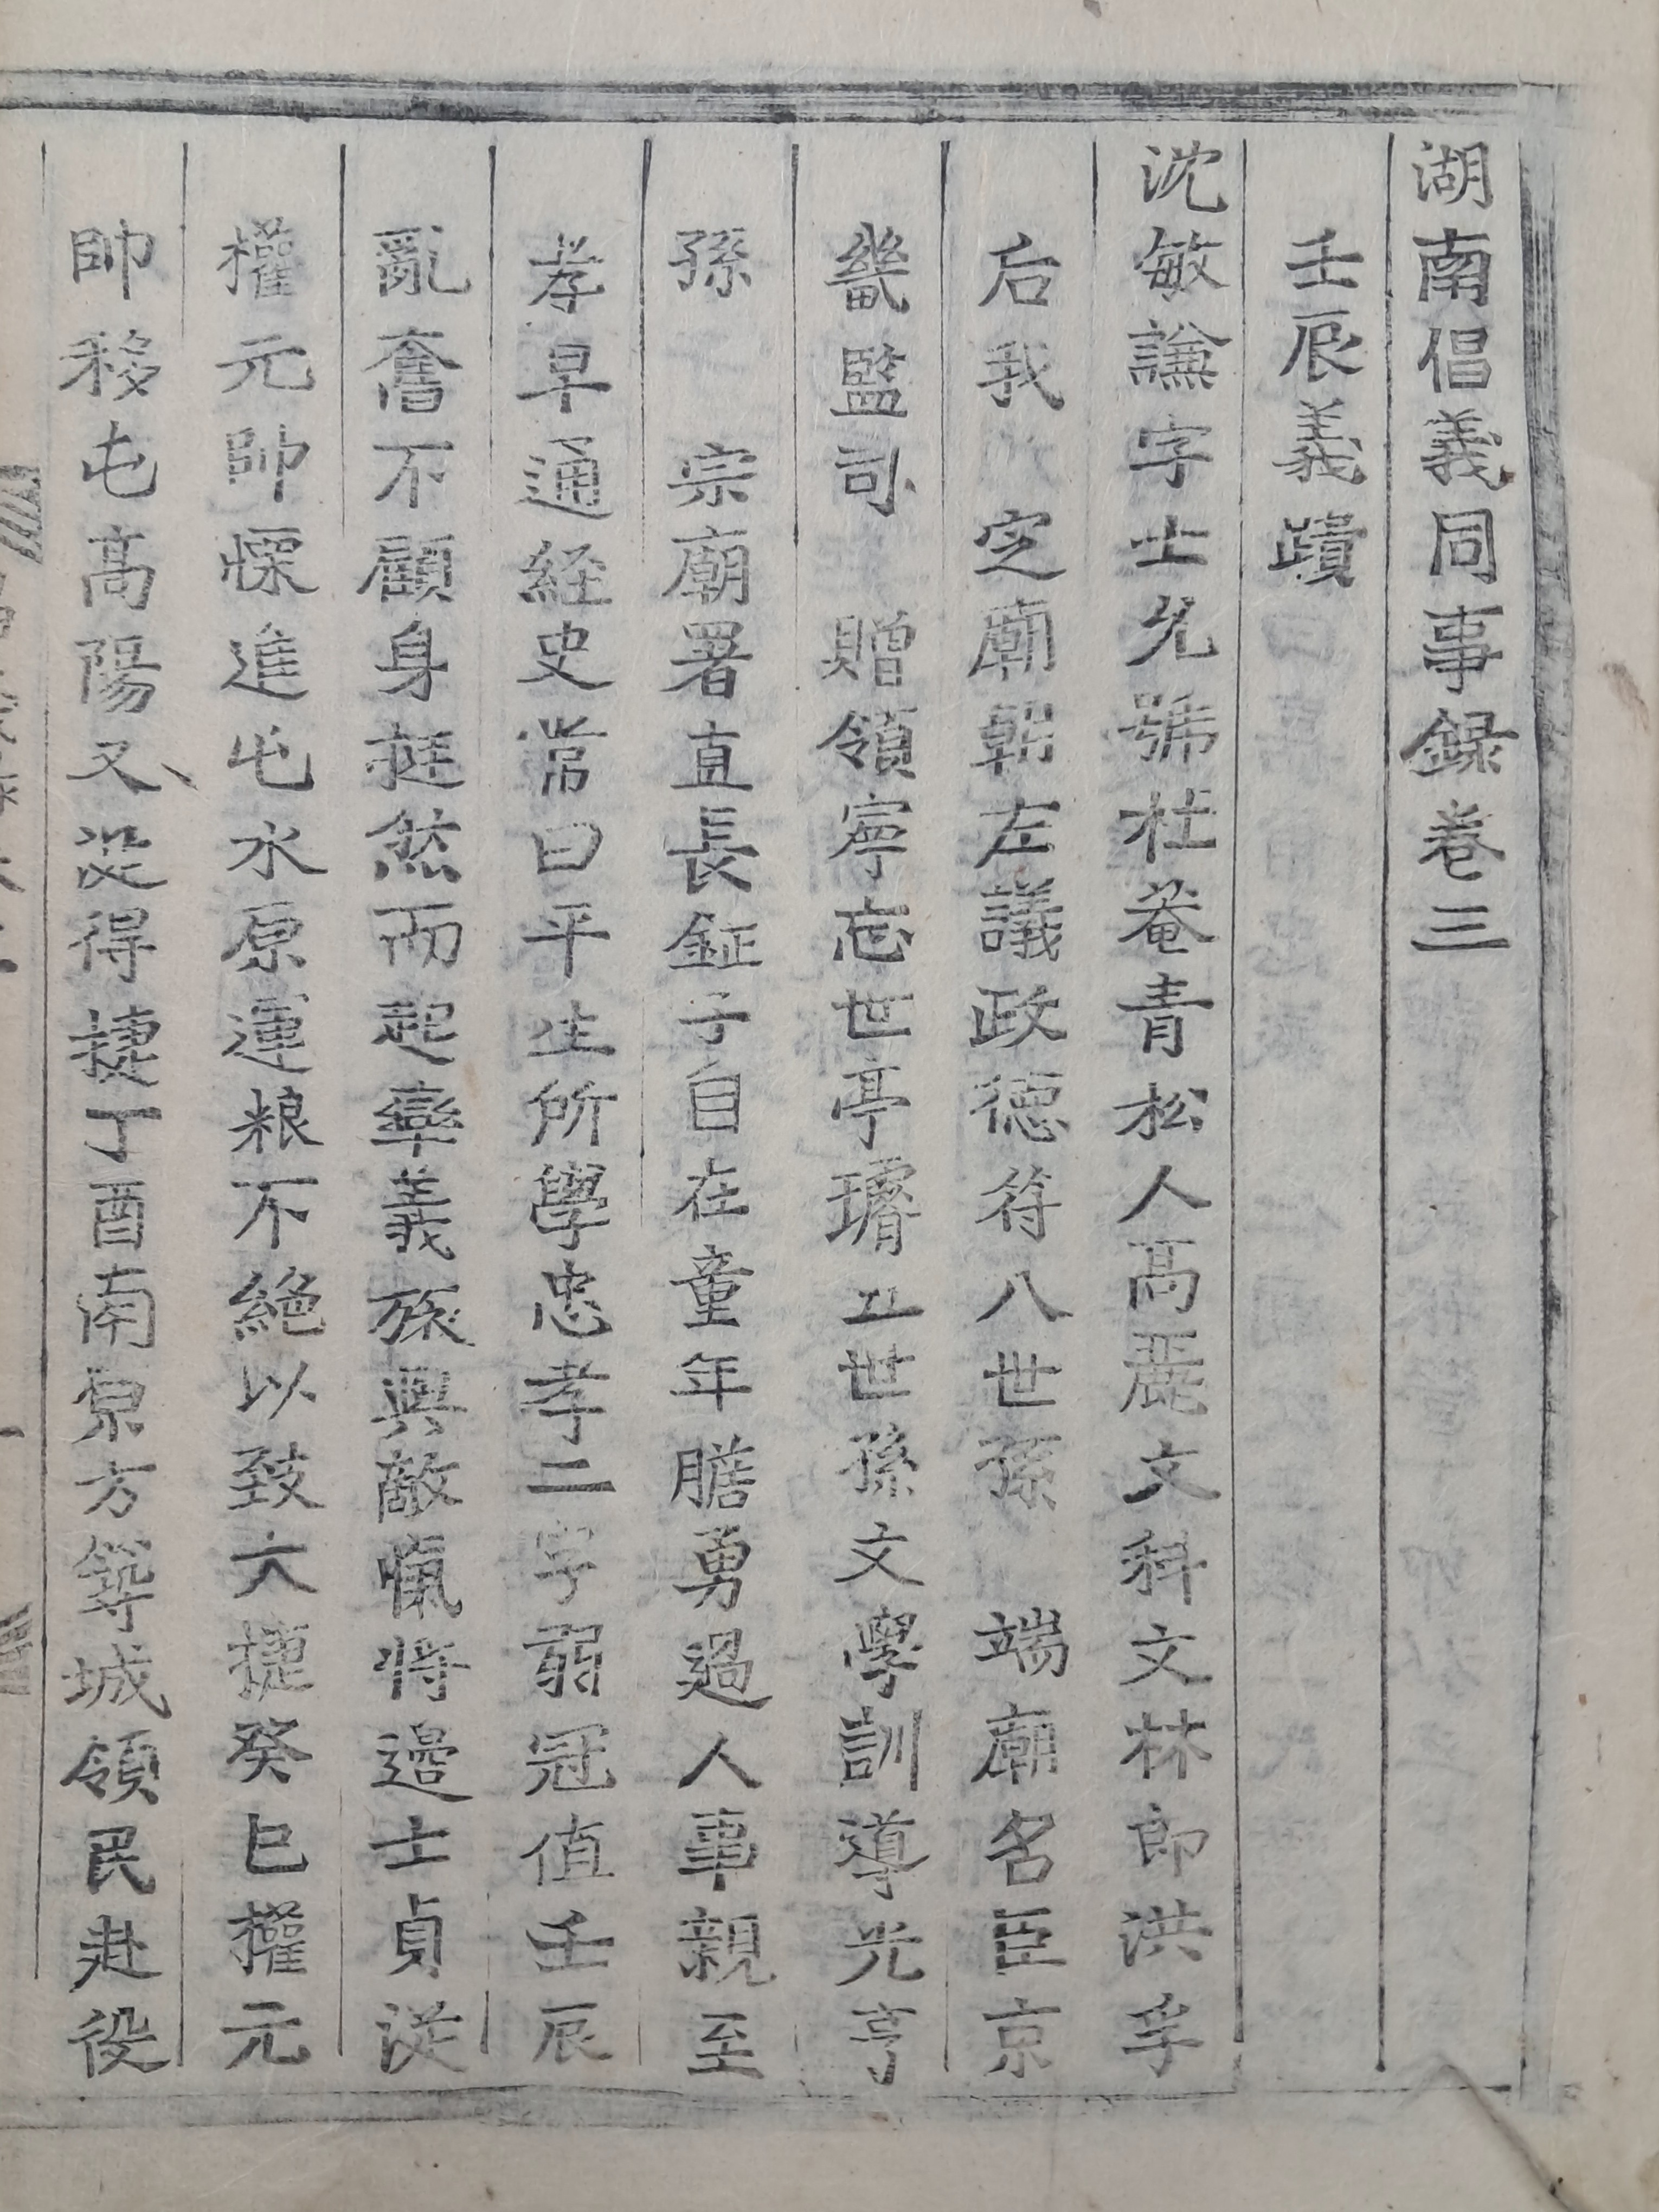 湖南倡義同事録卷三
壬辰義蹟
沈敏謙字士允號杜菴青松人高麗文科文林郎洪孚
后我 定廟朝左議政德符八世孫 端廟名臣京
畿監司 贈領寧忘世亭璿五世孫文學訓導光亨
孫 宗廟署直長鉦子自在童年膽勇過人事親至
孝早通経史常曰平生所學忠孝二字弱冠值壬辰
亂奮不顧身挺然而起率義旅與敵愾将邊士貞從
權元帥慄進屯水原運粮不絶以致大捷癸巳權元
帥移屯高陽又從得捷丁酉南原方等城領民赴役